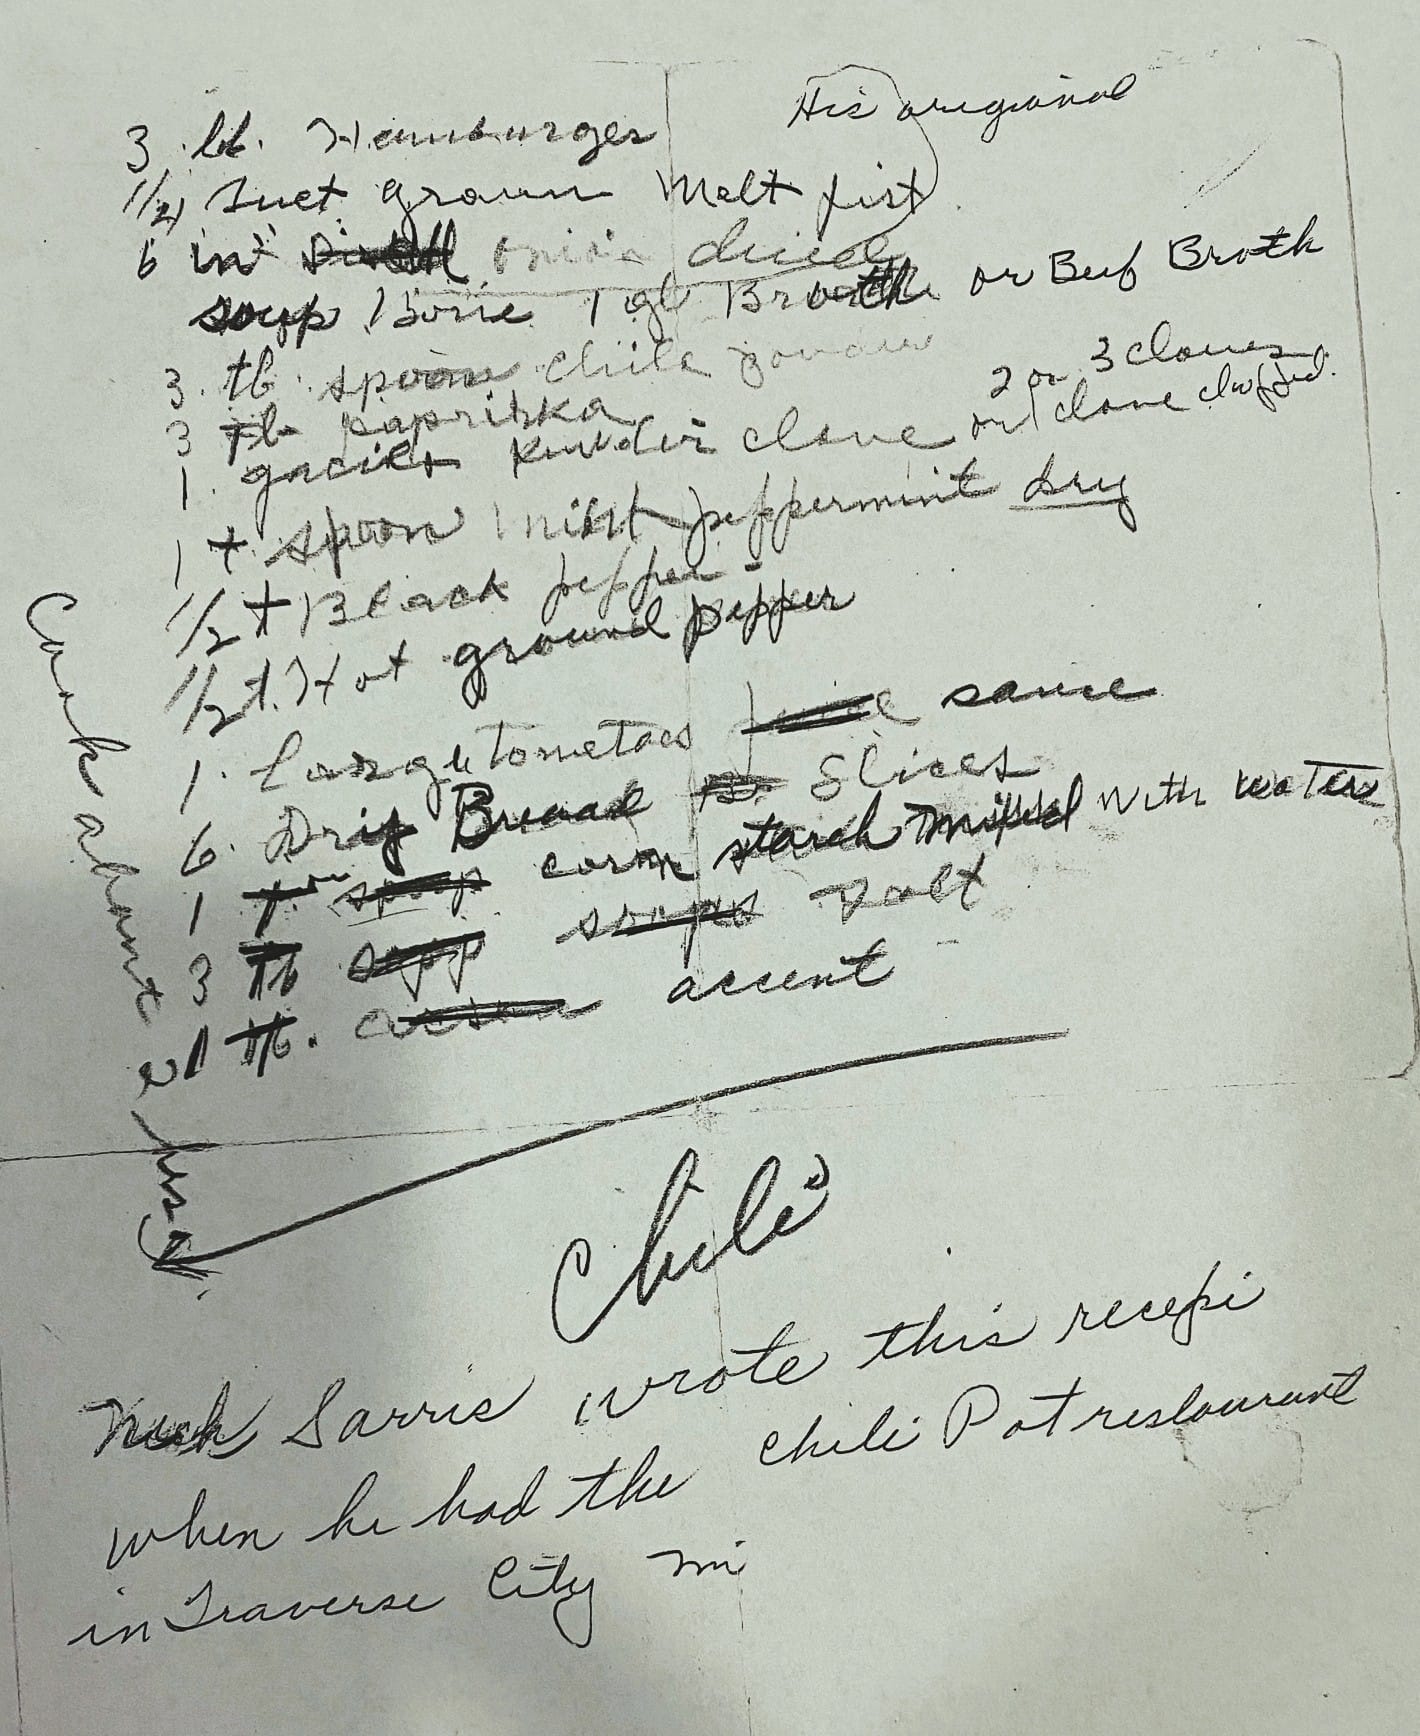 His oregional
3 lb. Hamburger
1 1/2 Suet groun Melt fist
6 in onion diced
soup Bone 1 gl Broth or Beef Broth
3 tb spoon chile powder
3 tb papriska
1 garlick clove or 1 clove chopped.
2 or 3 cloves
1 t spoon Mint peppermint dry
1/2 t Black pepper
1/2 t. Hot ground pepper
1. Large tometoes sauce
6. Dry Bread Slices
1 corn starch mixed with water
3 salt
accent
Cook about 2 hrs
Chili
Nick Sarris wrote this recepi
when he had the Chili Pot restaurant
in Traverse City Mi